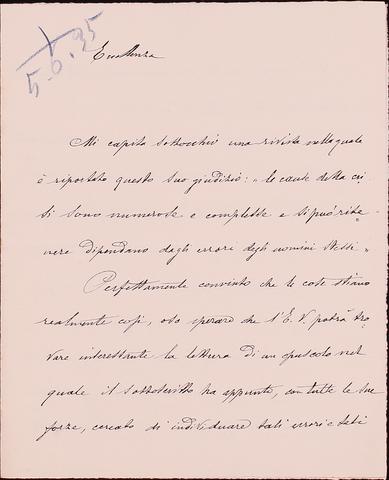 5.6.35
Eccellenza
Mi capita sottocchio una rivista nella quale
è riportato questo suo giudizio: "le cause della cri
si sono numerose e complesse e si può rite-
nere dipendano dagli errori degli uomini stessi"
Perfettamente convinto che le cose stiano
realmente così, oso sperare che l'E. V. potrà tro
vare interessante la lettura di un opuscolo nel
quale il sottoscritto ha appunto, con tutte le sue
forze, cercato di individuare tali errori e tali